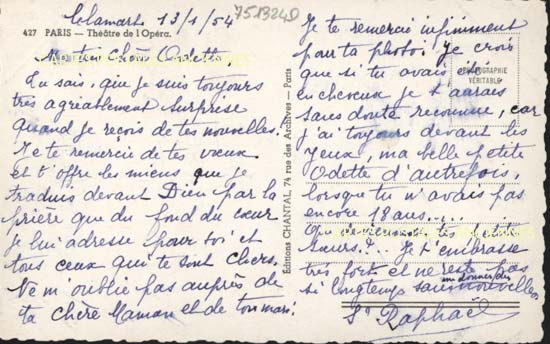 Clamart 13/1/54
7513240
427 PARIS — Théâtre de l'Opéra.
Ma très Chère Odette
Tu sais, que je suis toujours
très agréablement surprise
quand je reçois de tes nouvelles.
Je te remercie de tes vœux
et t'offre les miens que je
traduis devant Dieu par la
prière que du fond du cœur
je lui adresse pour toi et
tous ceux qui te sont chers.
Ne m'oublie pas auprès de
ta chère Maman et de ton mari.
Editions CHANTAL, 74 rue des Archives — Paris
PHOTOGRAPHIE
VÉRITABLE
Je te remercie infiniment
pour ta photo. Je crois
que si tu avais été
en cheveux je t'aurais
sans doute reconnue, car
j'ai toujours devant les
yeux, ma belle petite
Odette d'autrefois,
lorsque tu n'avais pas
encore 18 ans....
Que deviennent tes petites
sœurs?... Je t'embrasse
très fort et ne reste pas
si longtemps sans me donner des nouvelles
Sr Raphaël